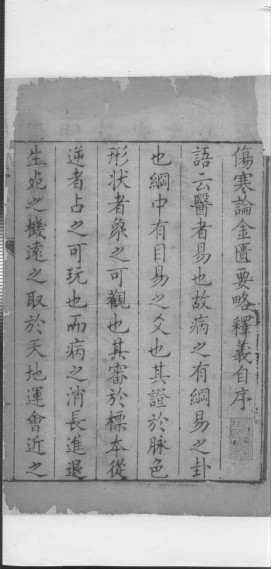 傷寒論金匱要略釋義自序
語云醫者易也故病之有綱易之卦
也綱中有目易之爻也其證於脉色
形状者彖之可觀也其審於標本從
逆者占之可玩也而病之消長進退
生尅之機遠之取於天地運會近之